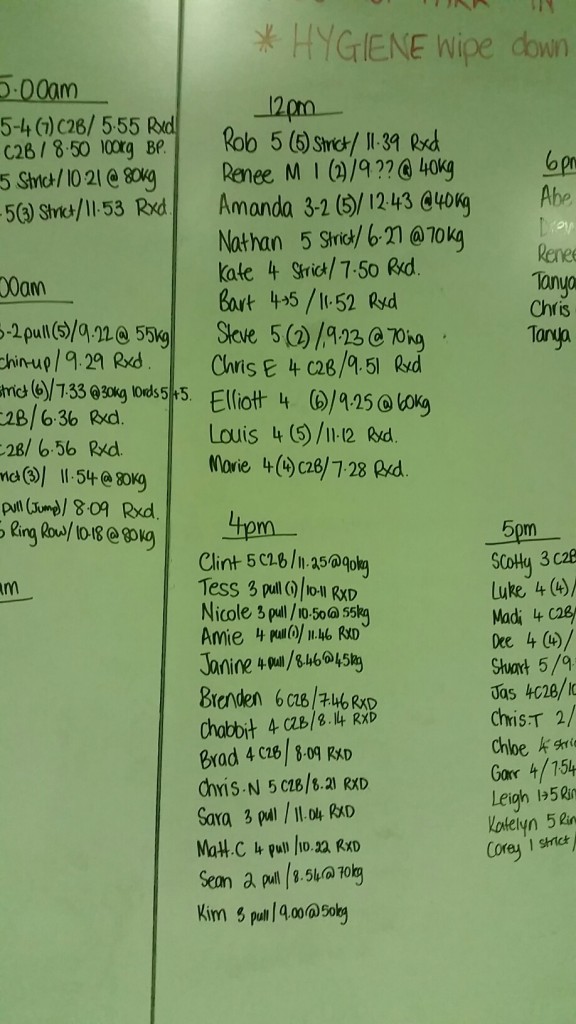 PARK IN
* HYGIENE wipe down
5.00am
5-4 (7) C2B/ 5.55 Rxd
C2B/ 8.50 100kg BP.
5 Strict/10.21 @ 80kg
5(3) Strict/11.53 Rxd.
00am
3-2 pull(5)/9.22 @ 55kg
chin-up/ 9.29 Rxd.
strict (6)/7.33 @30kg 10rds 5+5.
C2B/ 6.36 Rxd.
C2B/ 6.56 Rxd.
rict(3)/ 11.54 @ 80kg
pull (Jump)/ 8.09 Rxd.
5 Ring Row/10.18 @ 80kg
am
12pm
Rob 5 (5) Strict/ 11.39 Rxd
Renee M 1 (2)/9.?? @ 40kg
Amanda 3-2 (5)/ 12.43 @40kg
Nathan 5 Strict/6.27 @70kg
Kate 4 Strict/7.50 Rxd.
Bart 4→5 /11.52 Rxd
Steve 5 (2) /9.23 @ 70kg
Chris E 4 C2B/9.51 Rxd
Elliott 4 (6)/9.25 @ 60kg
Louis 4 (5)/11.12 Rxd.
Marie 4(4) C2B/7.28 Rxd.
4pm
Clint 5 C2B/11.25@90kg
Tess 3 pull (1)/10.11 RXD
Nicole 3 pull/10.50@ 55kg
Amie 4 pull(1)/ 11.46 RXD
Janine 4 pull/8.46@45kg
Brenden 6 C2B/7.46 RXD
Chabbit 4 C2B/8.14 RXD
Brad 4 C2B/ 8.09 RXD
Chris.N 5 C2B/8.21 RXD
Sara 3 pull / 11.04 RXD
Matt.C 4 pull/10.22 RXD
Sean 2 pull/8.54@70kg
Kim 3 pull/9.00@50kg
6pm
Abe
Drew
Renee
Tanya
Chris
Tanya
5pm
Scotty 3 C2B
Luke 4 (4)/
Madi 4 C2B/
Dee 4 (4)/
Stuart 5 /9.
Jas 4C2B/10
Chris.T 2/
Chloe 4 stric
Garr 4/ 7.54
Leigh 1→5 Rin
Katelyn 5 Rin
Corey 1 strict/